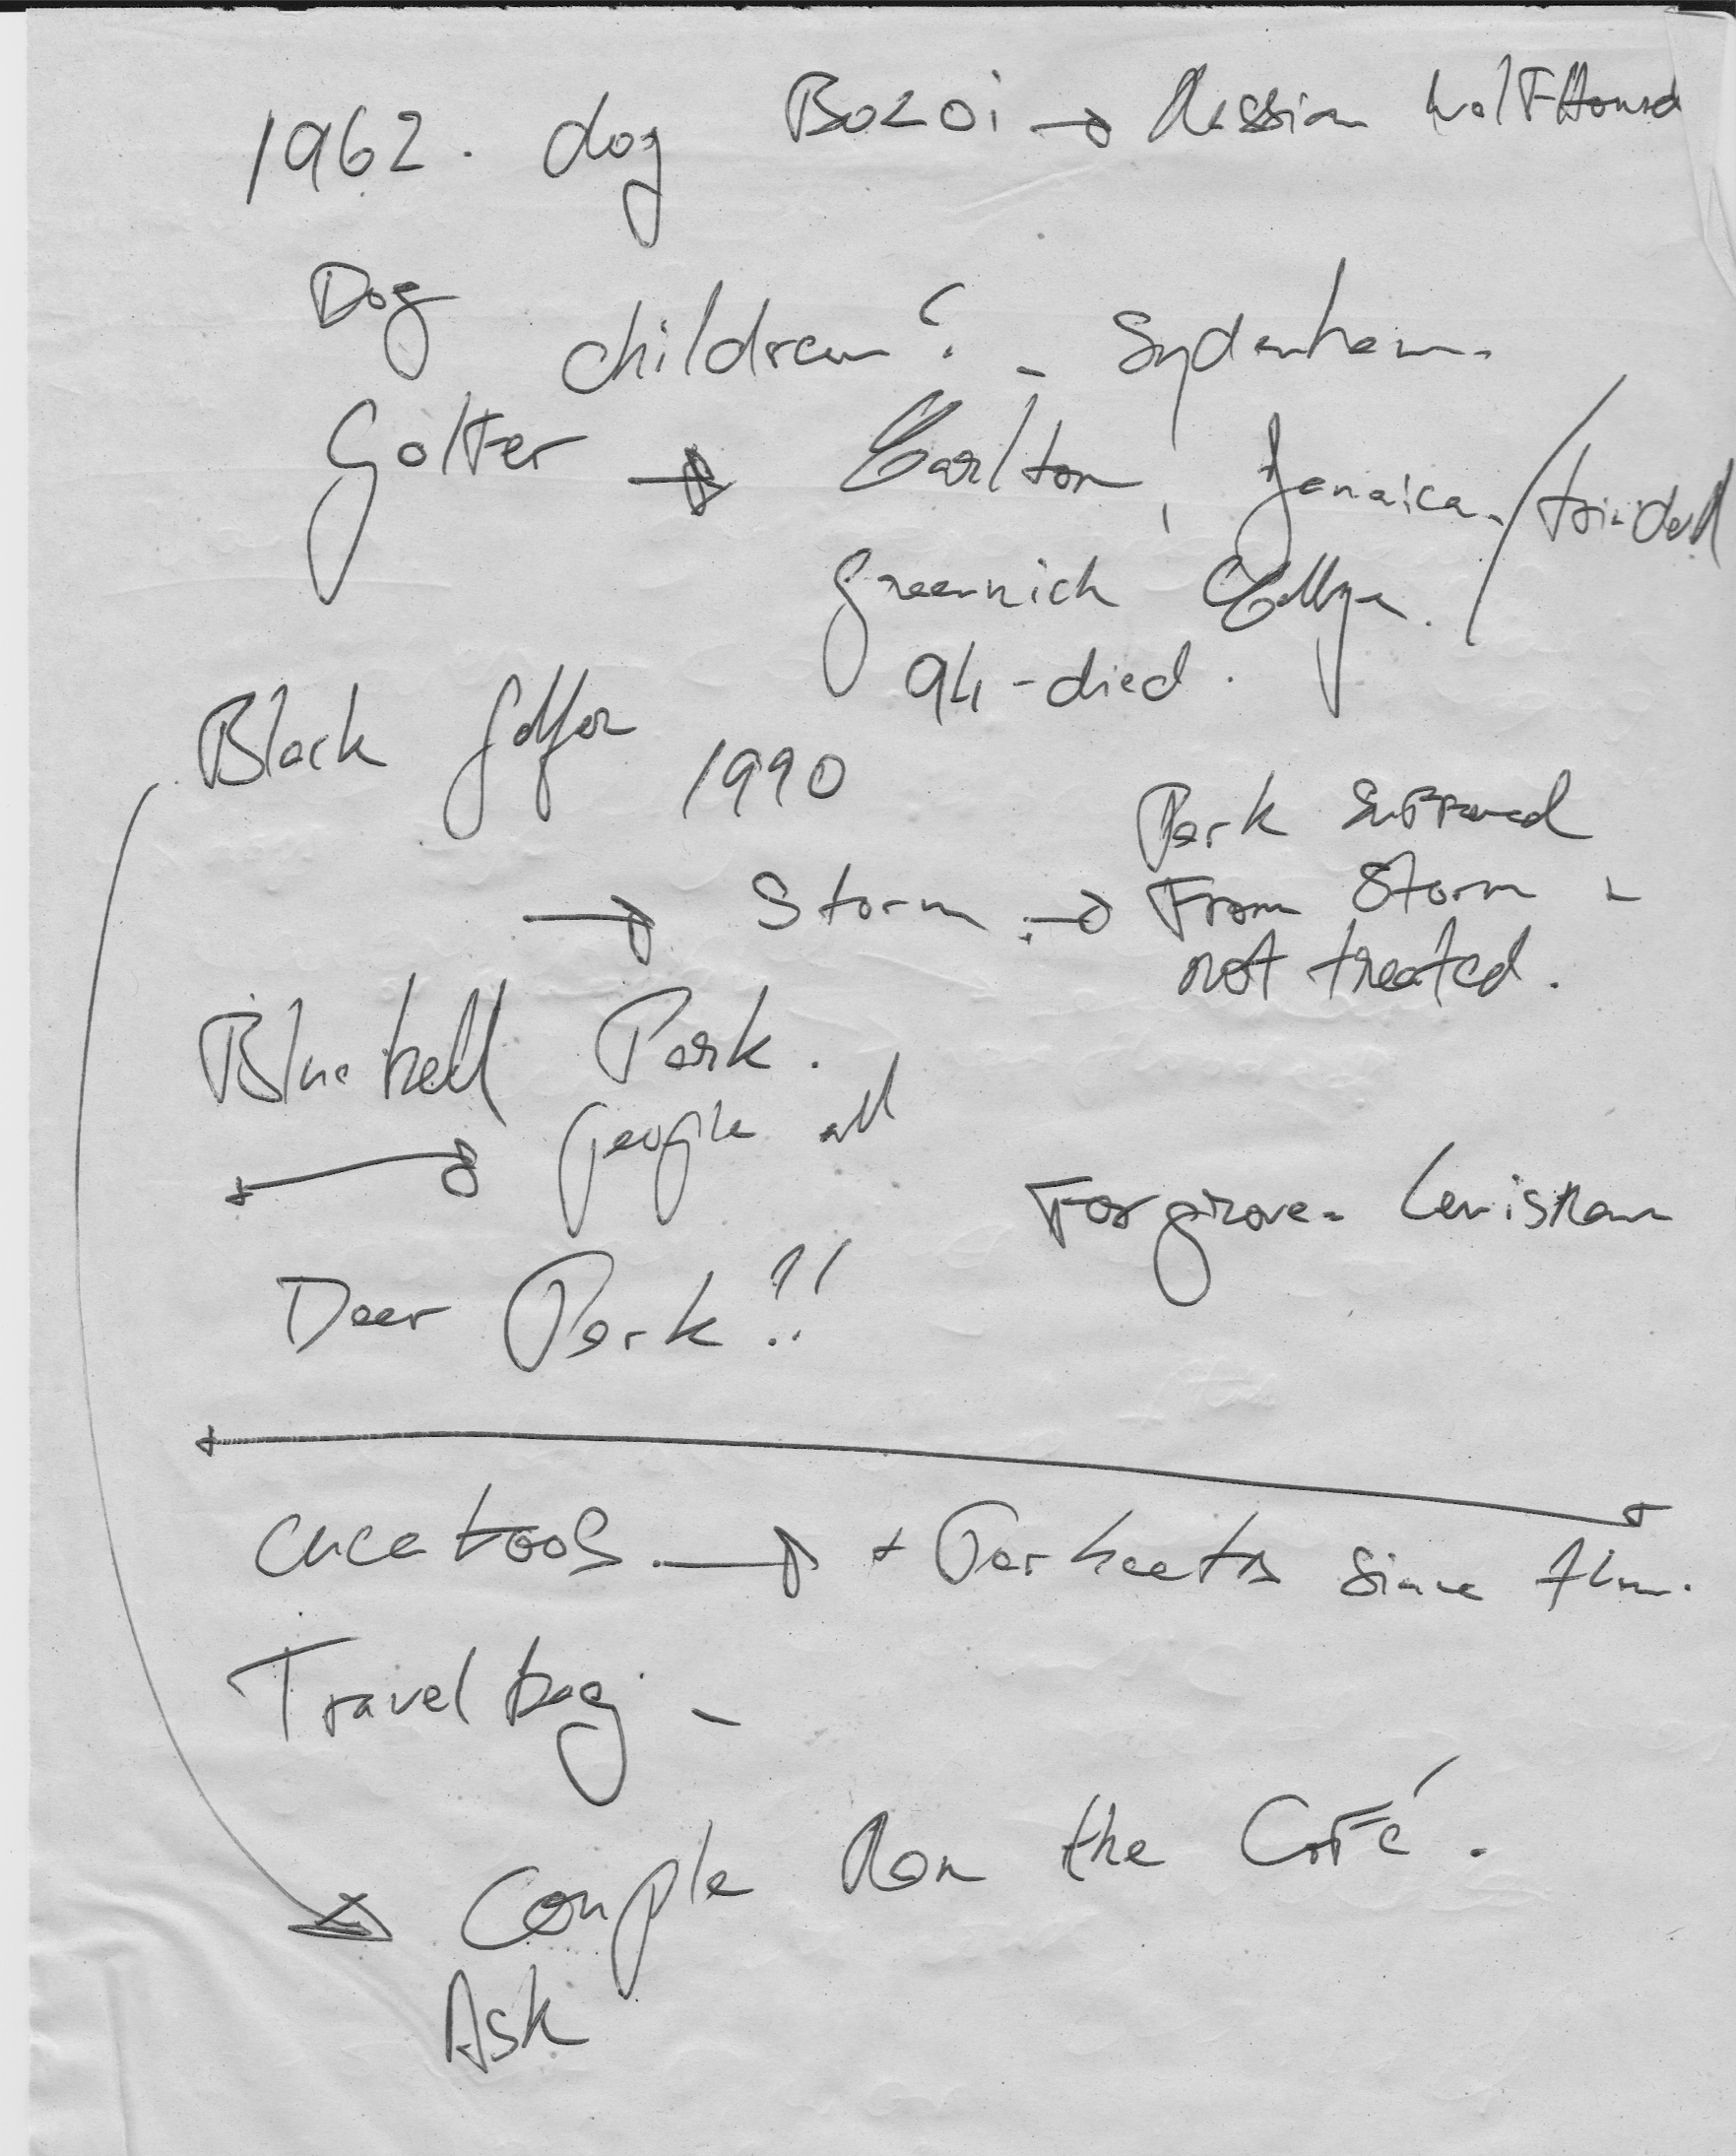 1962. dog Bozoi → Russian WolFHound
Dog
children? - Sydenham.
GolFer → Carlton, Jamaica. / trinidad
Greenwich College.
94 - died.
Black golfer
1990
Park suffered
→ Storm. → From Storm -
not treated.
Bluebell Park.
→ people all
Forgrove - Lewisham
Deer Park?!
cucatoos → + Parkeets since
Travel bag -
→ Couple Ron the CaFé.
Ask